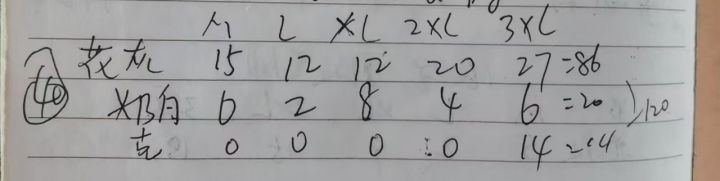 M L XL 2XL 3XL
花灰 15 12 12 20 27 =86
40 奶白 0 2 8 4 6 =20 120
0 0 0 0 14 =14